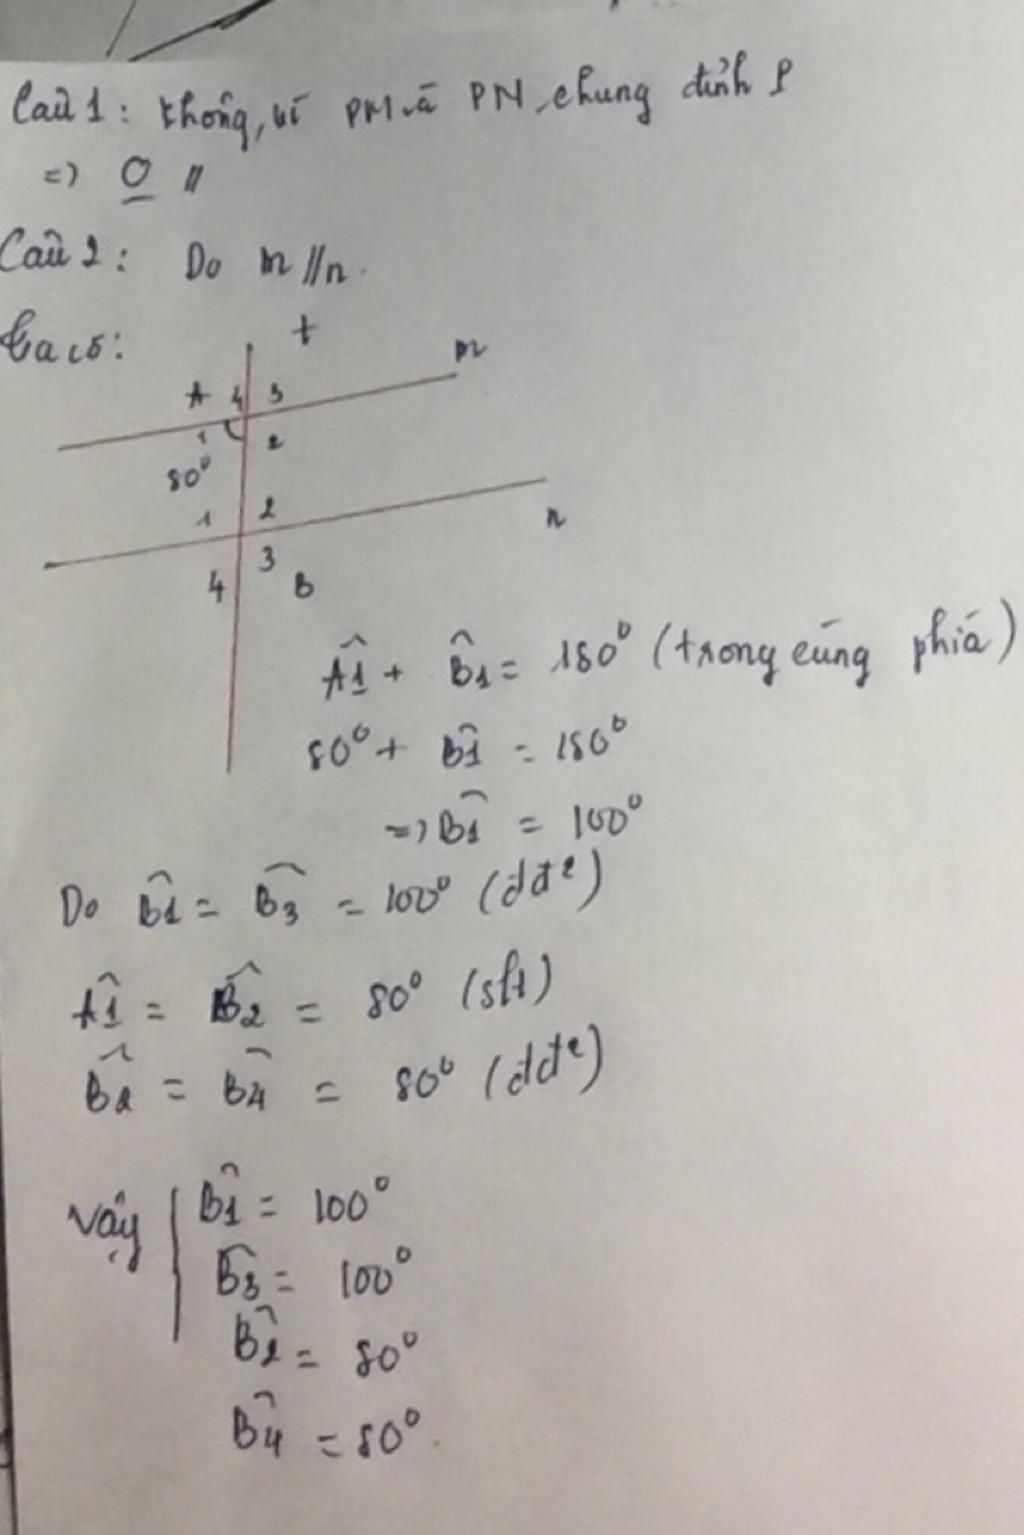 Câu 1: Không, vì PM và PN chung đỉnh P
=> O̲ //
Câu 2: Do m//n.
Ta có:
t
m
A 4 3
1 2
80⁰
1 2
n
3
4 B
Â1 + B̂1 = 180⁰ (trong cùng phía)
80⁰ + B̂1 = 180⁰
=> B̂1 = 100⁰
Do B̂1 = B̂3 = 100⁰ (đđ²)
Â1 = B̂2 = 80⁰ (slt)
B̂2 = B̂4 = 80⁰ (đđ²)
Vậy B̂1 = 100⁰
B̂3 = 100⁰
B̂2 = 80⁰
B̂4 = 80⁰.